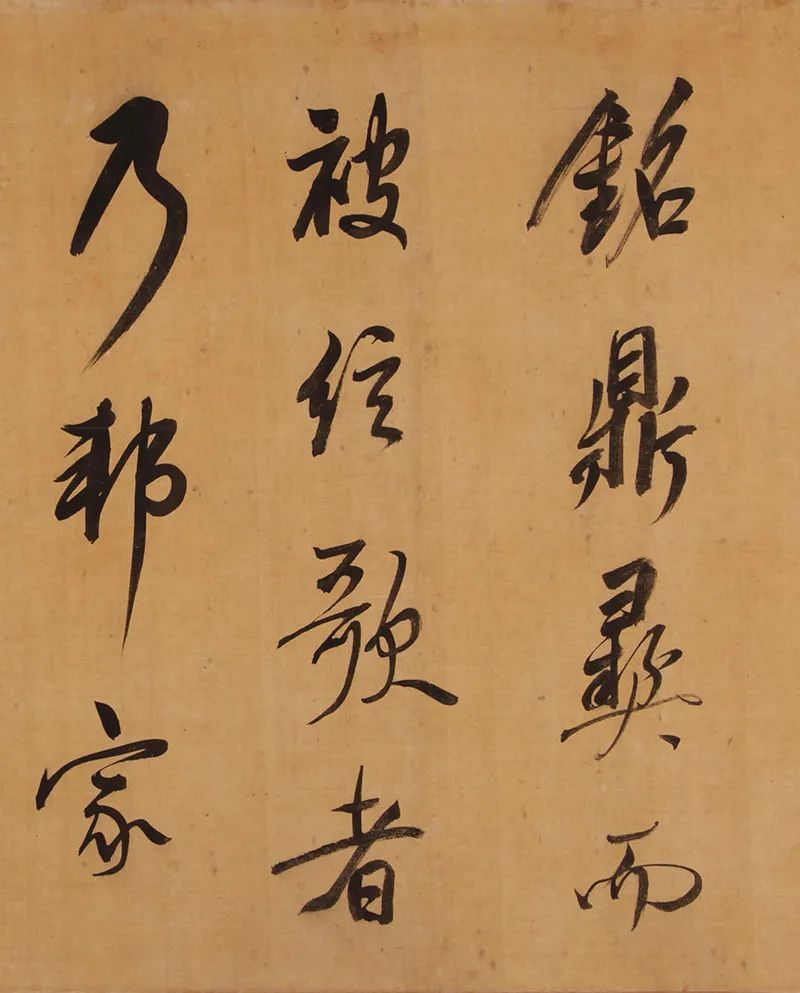 銘鼎彝而
被絃歌者
乃邦家